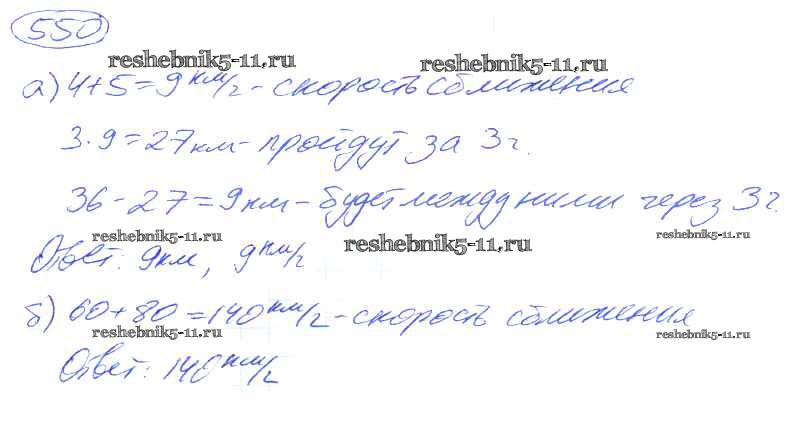 550
reshebnik5-11.ru reshebnik5-11.ru
а) 4+5=9 км/ч - скорость сближения
3·9=27 км - пройдут за 3 ч.
36-27=9 км - будет между ними через 3 ч.
reshebnik5-11.ru reshebnik5-11.ru reshebnik5-11.ru
Ответ: 9 км, 9 км/ч
б) 60+80=140 км/ч - скорость сближения
reshebnik5-11.ru reshebnik5-11.ru
Ответ: 140 км/ч